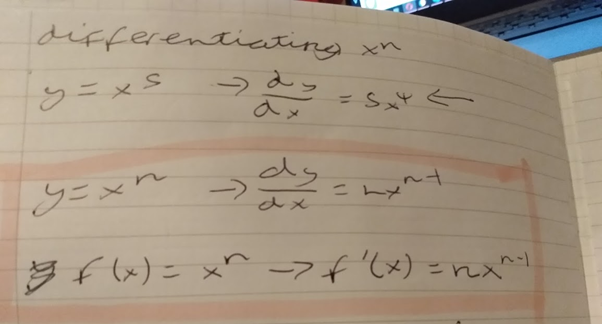 differentiating xⁿ
y = x⁵ → dy/dx = 5x⁴ ←
y = xⁿ → dy/dx = nxⁿ⁻¹
f(x) = xⁿ → f'(x) = nxⁿ⁻¹